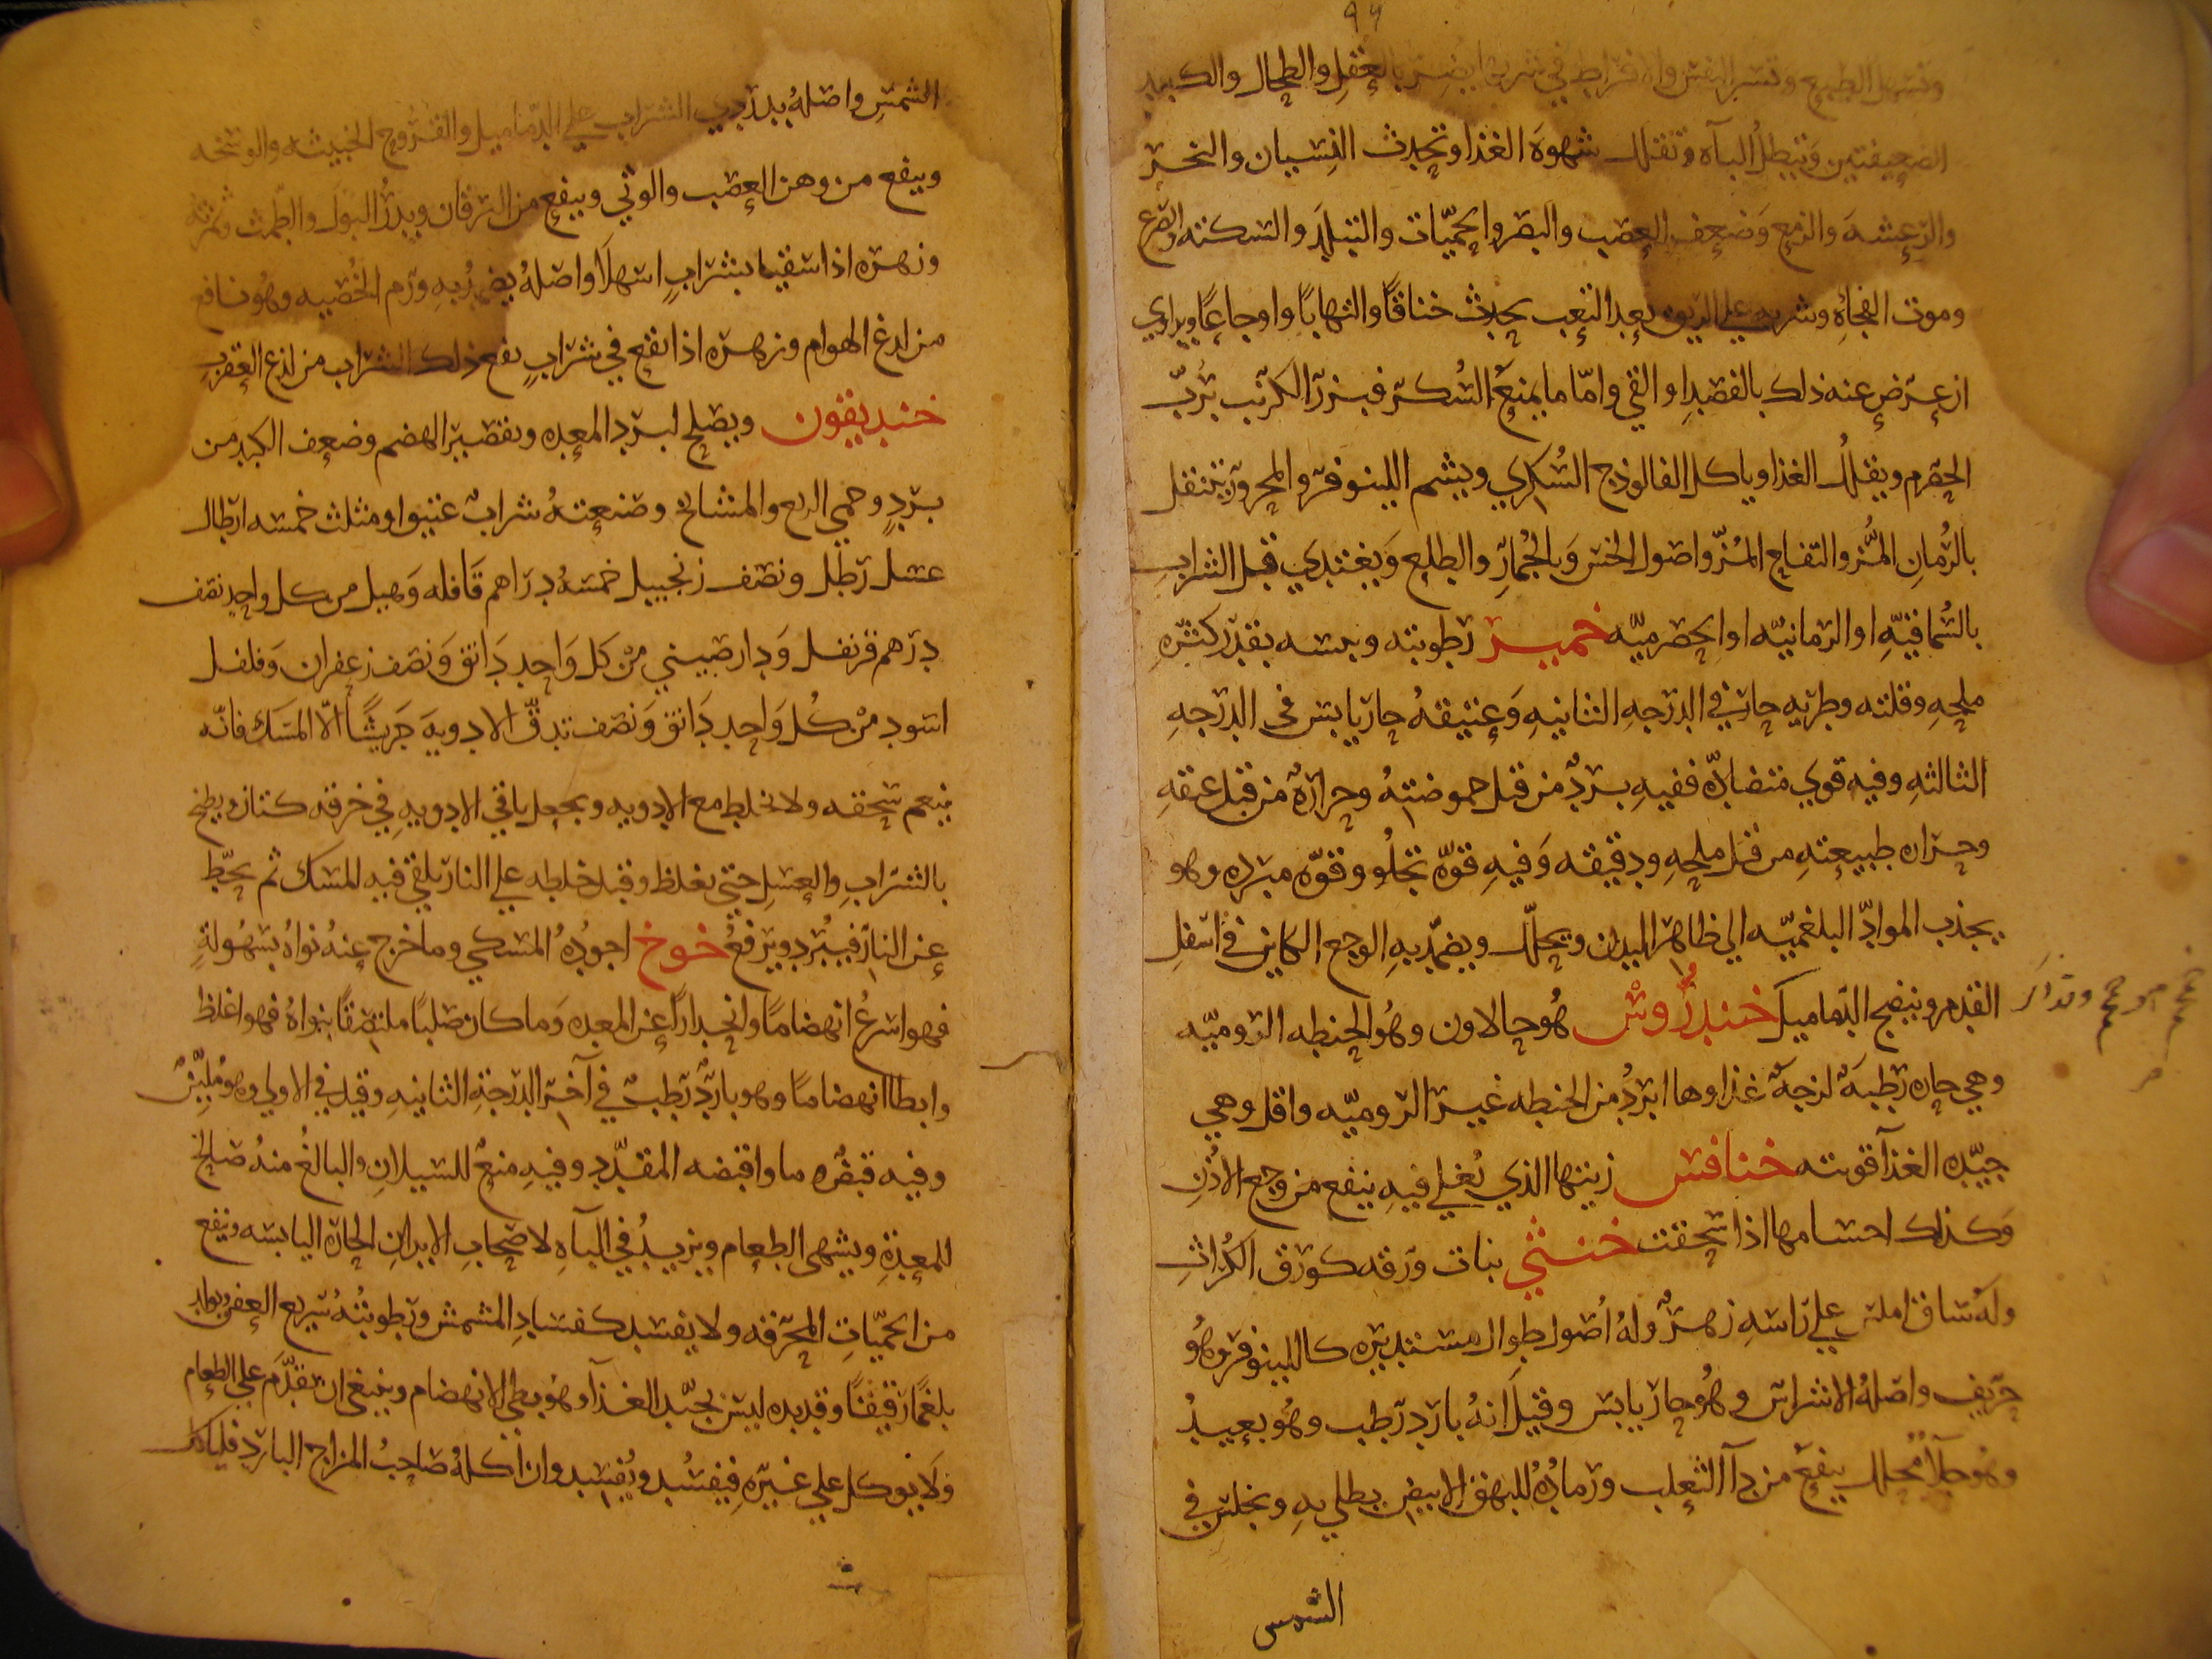 ٩٩
وتسهل الطبيع وتسر النفس والافراط في شربها يضر بالعقل والطحال والكبد
الضعيفتين وتبطل الباه وتقلل شهوة الغذا وتحدث النسيان والبخر
والرعشه والزمع وضعف العصب والبصر والحميات والتبلد والسكته والصرع
وموت الفجاه وشربه علي الريق بعد التعب يحدث خناقا والتهابا واوجاعا ويداوي
ان عرض عنه ذلك بالفصد او القي واما ما يمنع السكر فبزر الكرنب برب
الحصرم ويقلل الغذا وياكل الفالوذج السكري ويشم اللينوفر والمحرور يتنقل
بالرمان المز والتفاح المز واصول الخس وبالجمار والطلع ويغتدي قبل الشراب
بالسماقيه او الرمانيه او الحصرميه خمير رطوبته ويبسه بقدر كثره
ملحه وقلته وطريه حار في الدرجه الثانيه وعتيقه حار يابس في الدرجه
الثالثه وفيه قوي متضاده ففيه برد من قبل حموضته وحراره من قبل عتقه
وحراره طبيعته من قبل ملحه ودقيقه وفيه قوه تجلو وقوه مبرده وهو
يجذب المواد البلغميه الي ظاهر البدن ويحلل ويضمد به الوجع الكاين في اسفل
القدم وينضج الدماميل خندروش هو حالاون وهو الحنطه الروميه
وهي حاره رطبة لزجة غذاوها ابرد من الحنطه غير الروميه واقل وهي
جيده الغذا قويته خنافس زيتها الذي تغلي فيه ينفع من وجع الاذن
وكذلك اجسامها اذا سحقت خنثي نبات ورقه كورق الكراث
وله ساق املس علي راسه زهر وله اصول طوال مستديره كاللينوفر وهو
حريف واصله الاشراس وهو حار يابس وقيل انه بارد رطب وهو بعيد
وهو جلا محلل ينفع من دا الثعلب ورماده للبهق الابيض يطلي به ويجلس في
الشمس
الشمس واصله بدردي الشراب علي الدماميل والقروح الخبيثه والوسخه
وينفع من وهن العصب والوثي وينفع من اليرقان ويدر البول والطمث وثمرته
وزهره اذا سقيا بشراب اسهلا واصله يضمد به ورم الخصيه وهو نافع
من لدغ الهوام وزهره اذا نقع في شراب نفع ذلك الشراب من لدغ العقرب
خنديقون ويصلح لبرد المعده وتقصير الهضم وضعف الكبد من
برد وحمي الربع والمشايخ وصنعته شراب عتيق او مثلث خمسه ارطال
عسل رطل ونصف زنجبيل خمسه دراهم قافله وهيل من كل واحد نصف
درهم قرنفل ودارصيني من كل واحد دانق ونصف زعفران وفلفل
اسود من كل واحد دانق ونصف تدق الادويه جريشا الا المسك فانه
ينعم سحقه ولا تخلط مع الادويه ويجعل باقي الادويه في خرقه كتان ويطبخ
بالشراب والعسل حتي يغلظ وقبل خلطه علي النار يلقي فيه المسك ثم يحط
عن النار فيبرد ويرفع خوخ اجوده المسكي وما خرج عنه نواه بسهولة
فهو اسرع انهضاما وانحدارا عن المعده وما كان صلبا ملتصقا بنواه فهو اغلظ
وابطا انهضاما وهو بارد رطب في آخر الدرجة الثانيه وقيل في الاولي وهو ملين
وفيه قبض ما واقبضه المقدد وفيه منع للسيلان والبالغ منه صالح
للمعدة ويشهي الطعام ويزيد في الباه لاصحاب الابدان الحاره اليابسه وينفع
من الحميات المحرقه ولا يفسد كفساد المشمش ورطوبته سريع العفن ويولد
بلغما رقيقا وقديده ليس بجيد الغذا وهو بطي الانهضام وينبغي ان يقدم علي الطعام
ولا يوكل علي غيره فيفسد ويفسد وان اكله صاحب المزاج البارد فلياكل